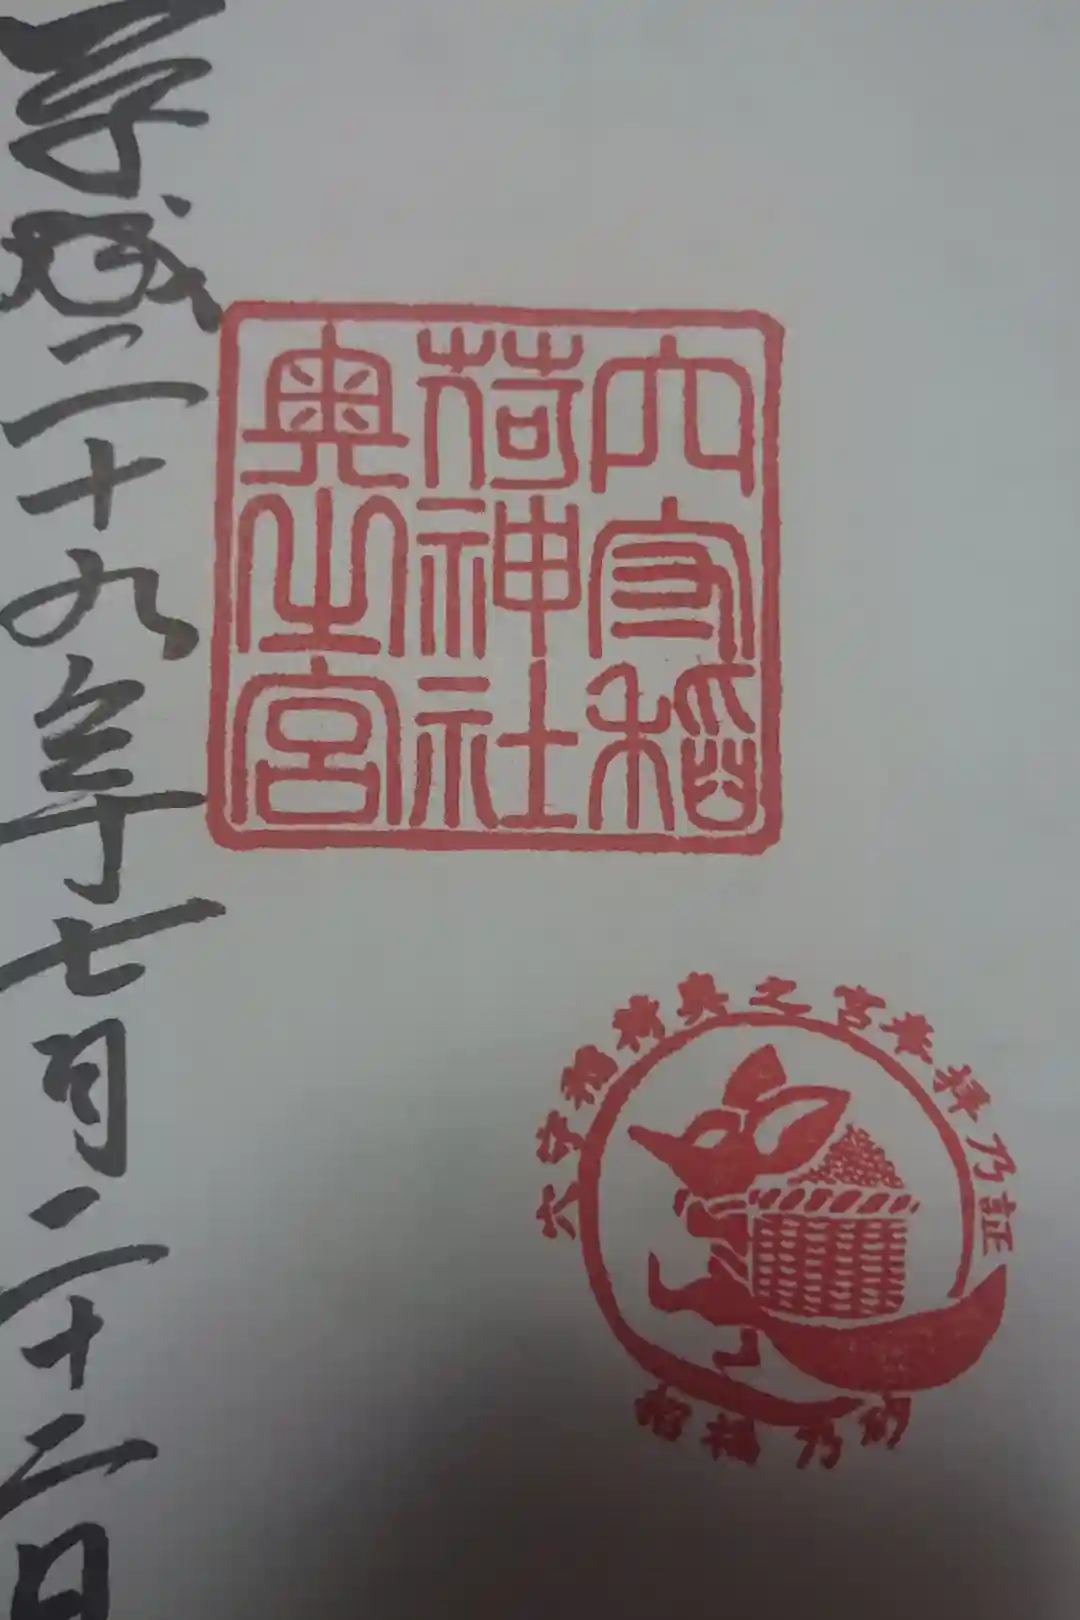 穴守稲
荷神社
奥之宮
穴守稲荷奥之宮参拝乃証
招福乃砂
平成二十九年七月二十二日